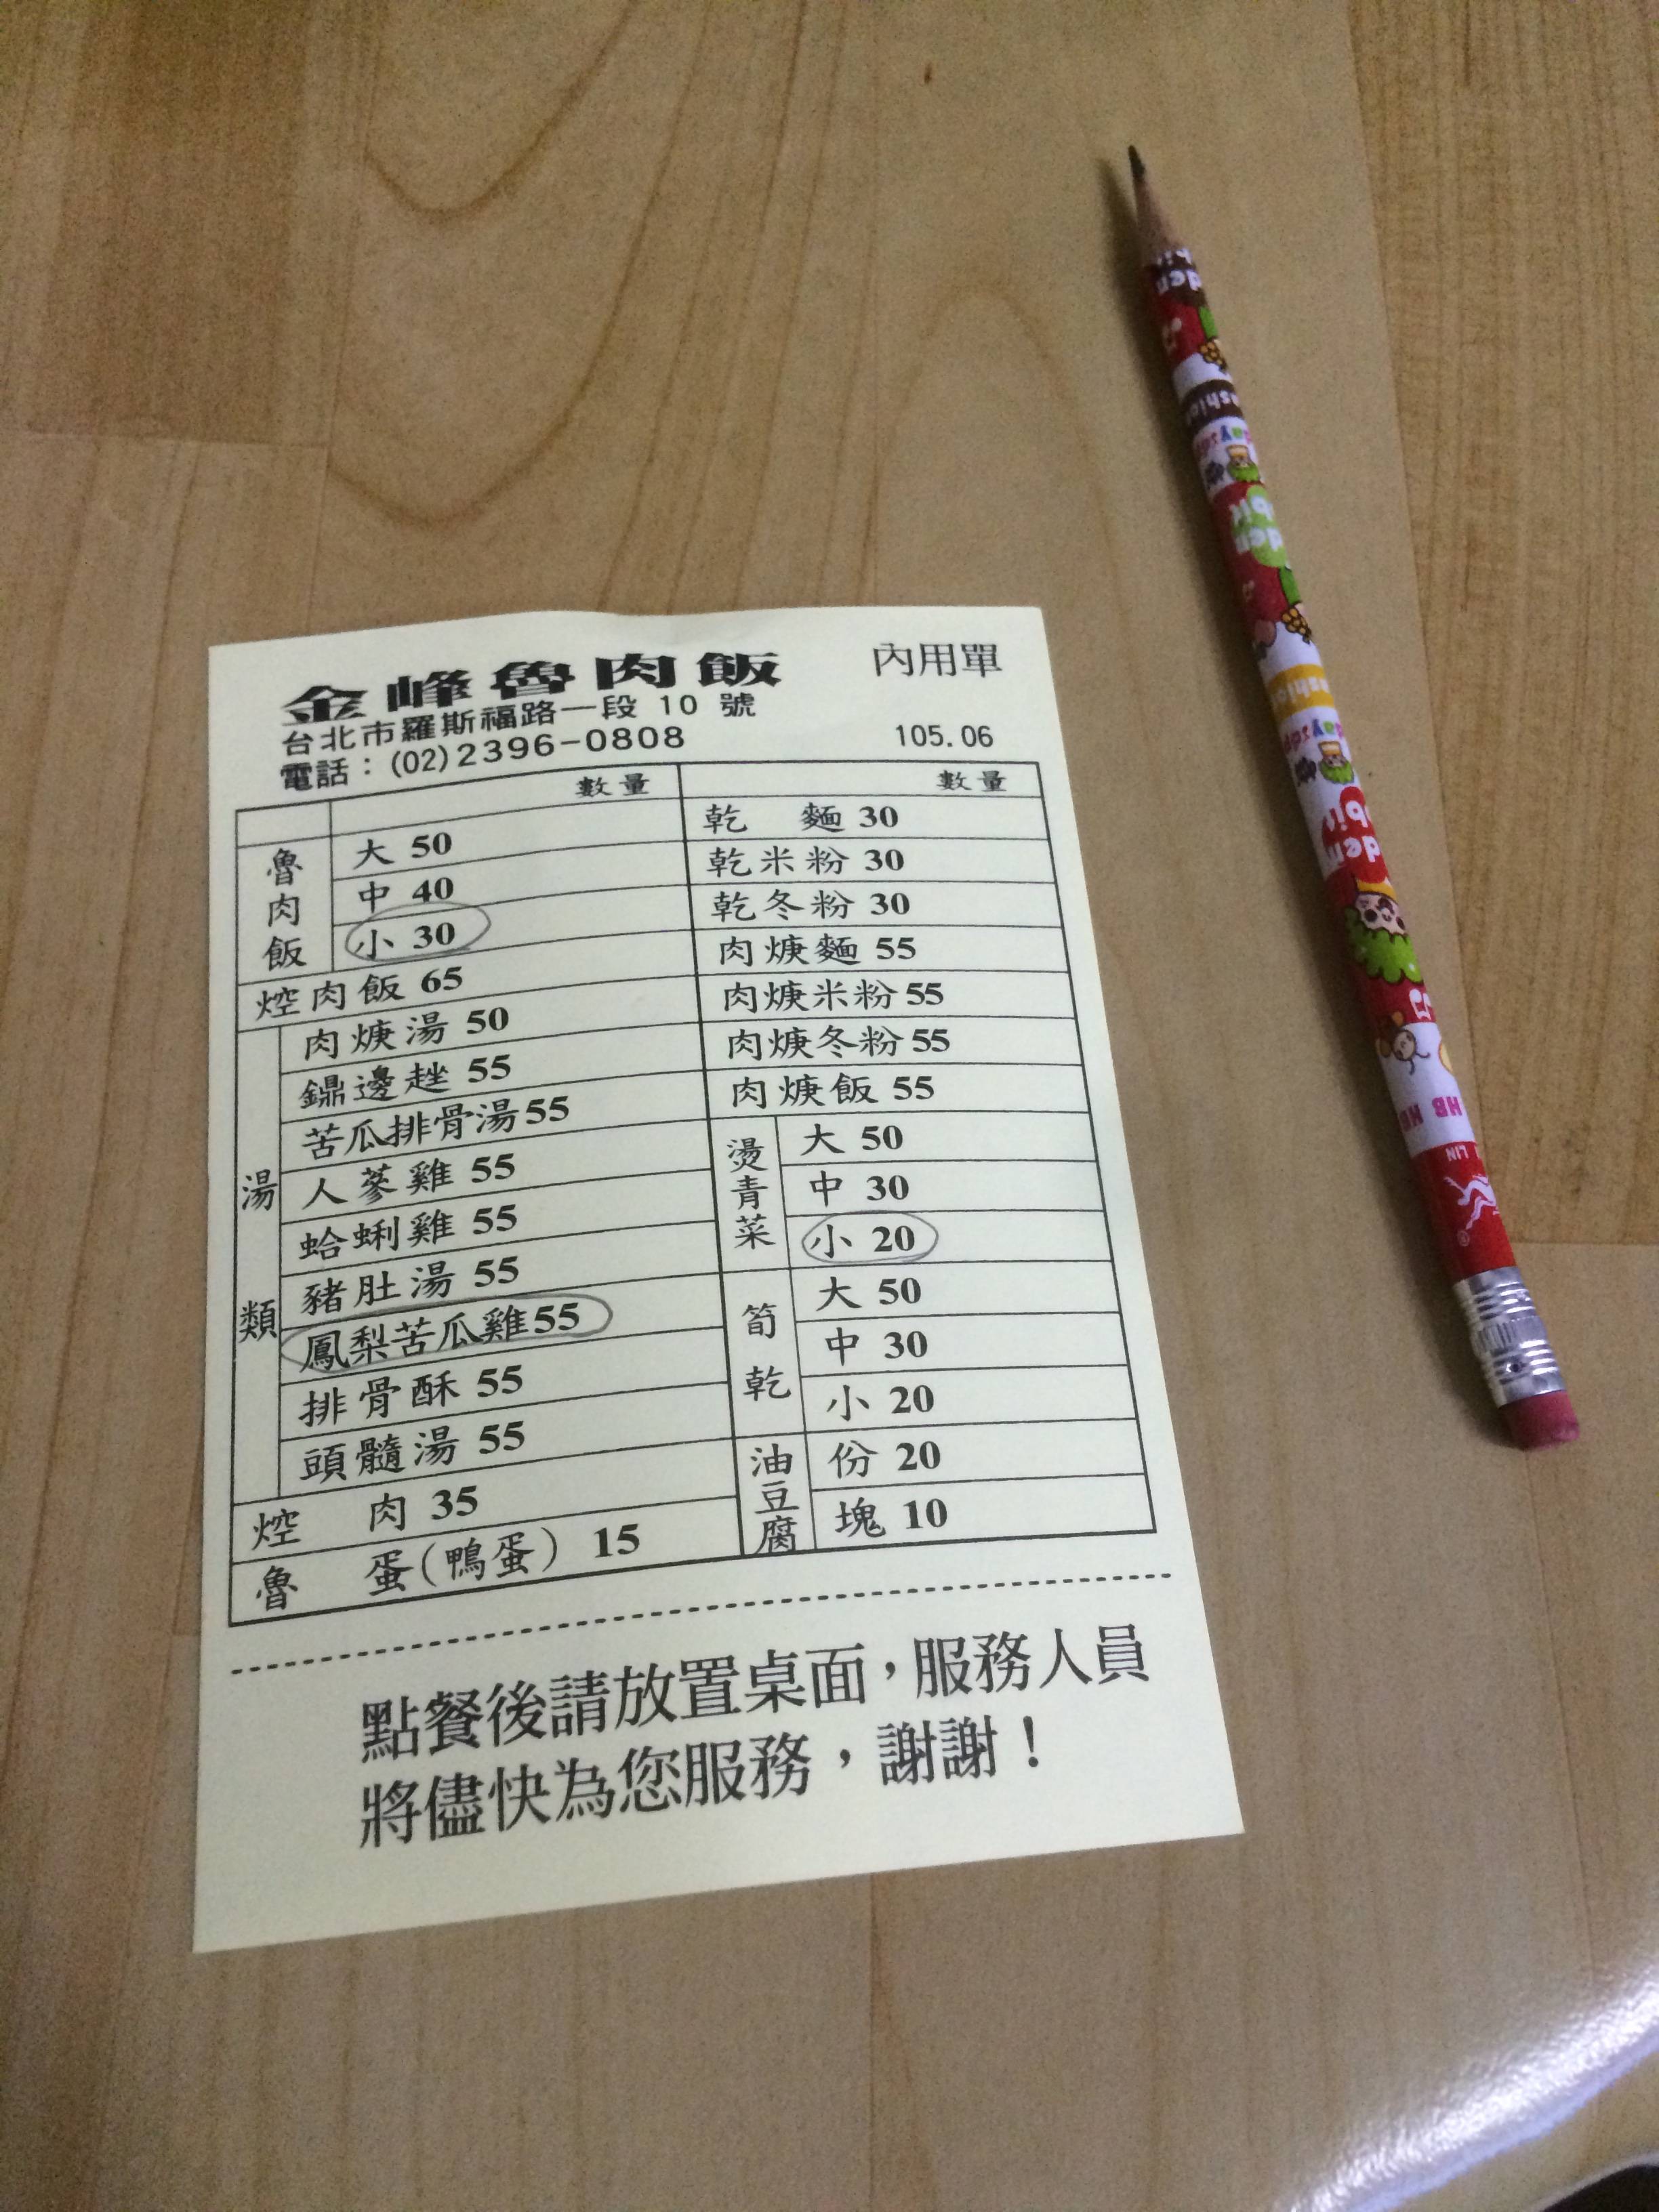 金峰魯肉飯 內用單
台北市羅斯福路一段 10 號
電話：(02)2396-0808 105.06
數量 數量
魯肉飯
大 50
中 40
小 30
焢肉飯 65
湯類
肉焿湯 50
鼎邊趖 55
苦瓜排骨湯 55
人蔘雞 55
蛤蜊雞 55
豬肚湯 55
鳳梨苦瓜雞 55
排骨酥 55
頭髓湯 55
焢 肉 35
魯 蛋(鴨蛋) 15
乾 麵 30
乾米粉 30
乾冬粉 30
肉焿麵 55
肉焿米粉 55
肉焿冬粉 55
肉焿飯 55
燙青菜
大 50
中 30
小 20
筍乾
大 50
中 30
小 20
油豆腐
份 20
塊 10
點餐後請放置桌面，服務人員
將儘快為您服務，謝謝！
HB HB
LIN